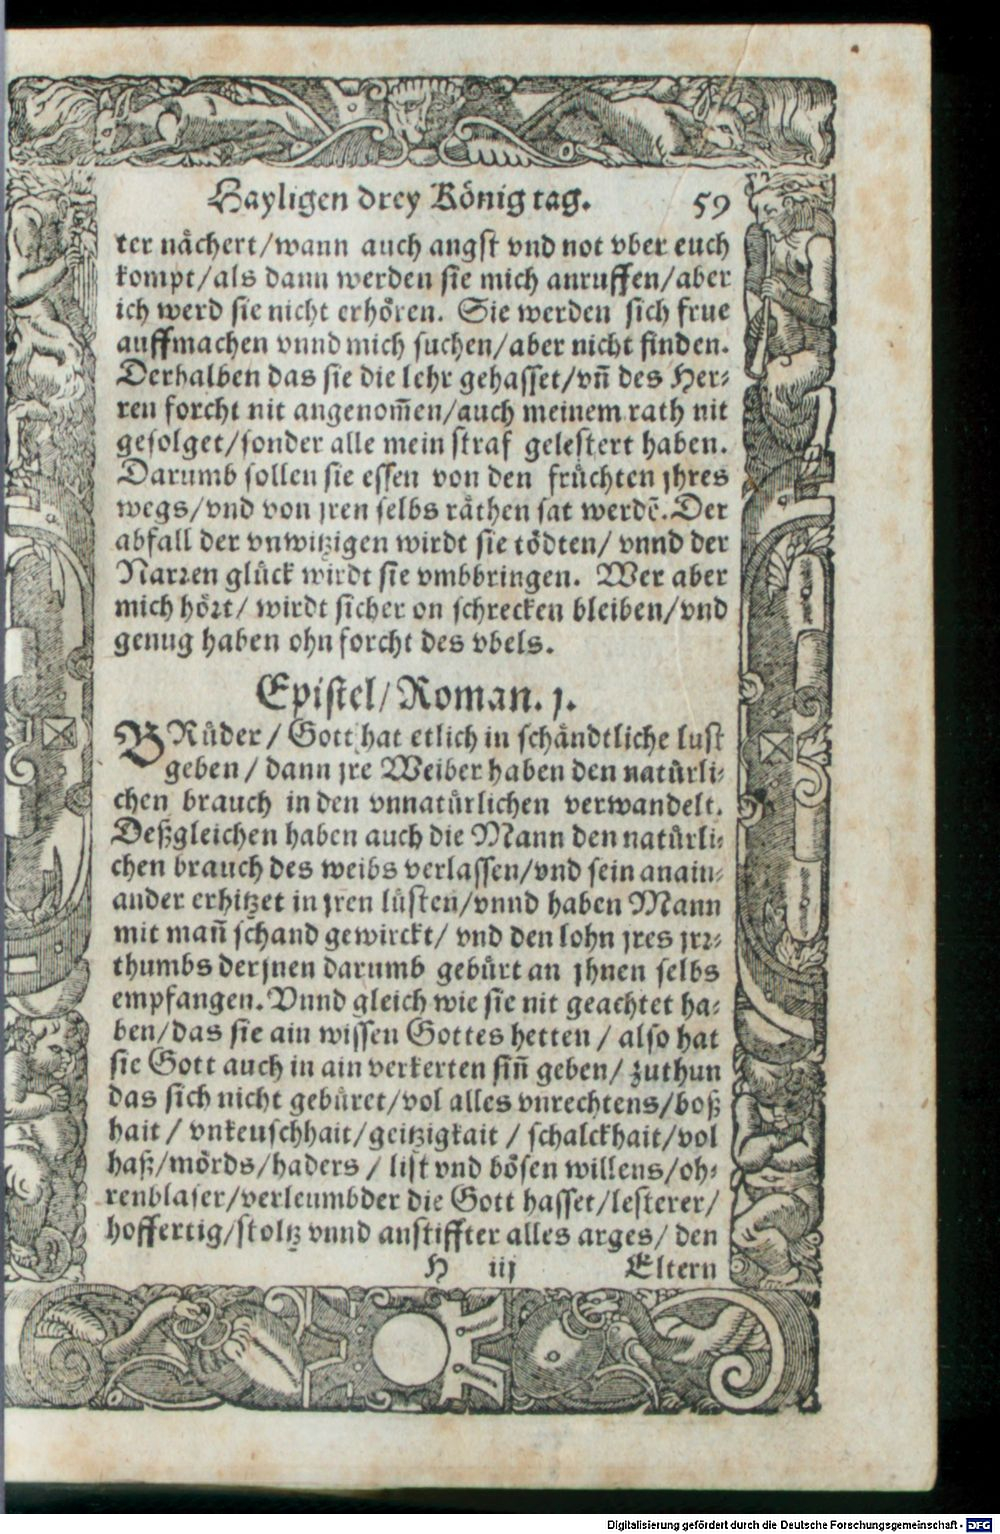 Hayligen drey König tag. 59
ter nächert/wann auch angst vnd not vber euch
kompt/als dann werden sie mich anruffen/aber
ich werd sie nicht erhören. Sie werden sich frue
auffmachen vnnd mich suchen/aber nicht finden.
Derhalben das sie die lehr gehasset/vñ des Her-
ren forcht nit angenom̃en/auch meinem rath nit
gefolget/sonder alle mein straf gelestert haben.
Darumb sollen sie essen von den früchten jhres
wegs/vnd von jren selbs räthen sat werdẽ. Der
abfall der vnwitzigen wirdt sie tödten/ vnnd der
Narren glück wirdt sie vmbbringen. Wer aber
mich hört/ wirdt sicher on schrecken bleiben/vnd
genug haben ohn forcht des vbels.
Epistel/Roman. j.
BRüder/ Gott hat etlich in schändtliche lust
geben/ dann jre Weiber haben den natürli-
chen brauch in den vnnatürlichen verwandelt.
Deßgleichen haben auch die Mann den natürli-
chen brauch des weibs verlassen/vnd sein anain-
ander erhitzet in jren lüsten/vnnd haben Mann
mit mañ schand gewirckt/ vnd den lohn jres jrr-
thumbs der jnen darumb gebürt an jhnen selbs
empfangen. Vnnd gleich wie sie nit geachtet ha-
ben/das sie ain wissen Gottes hetten/ also hat
sie Gott auch in ain verkerten siñ geben/ zuthun
das sich nicht gebüret/vol alles vnrechtens/boß
hait/ vnkeuschhait/geitzigkait/ schalckhait/vol
haß/mörds/haders/ list vnd bösen willens/oh-
renblaser/verleumbder die Gott hasset/lesterer/
hoffertig/stoltz vnnd anstiffter alles arges/ den
H iij Eltern
Digitalisierung gefördert durch die Deutsche Forschungsgemeinschaft - DFG